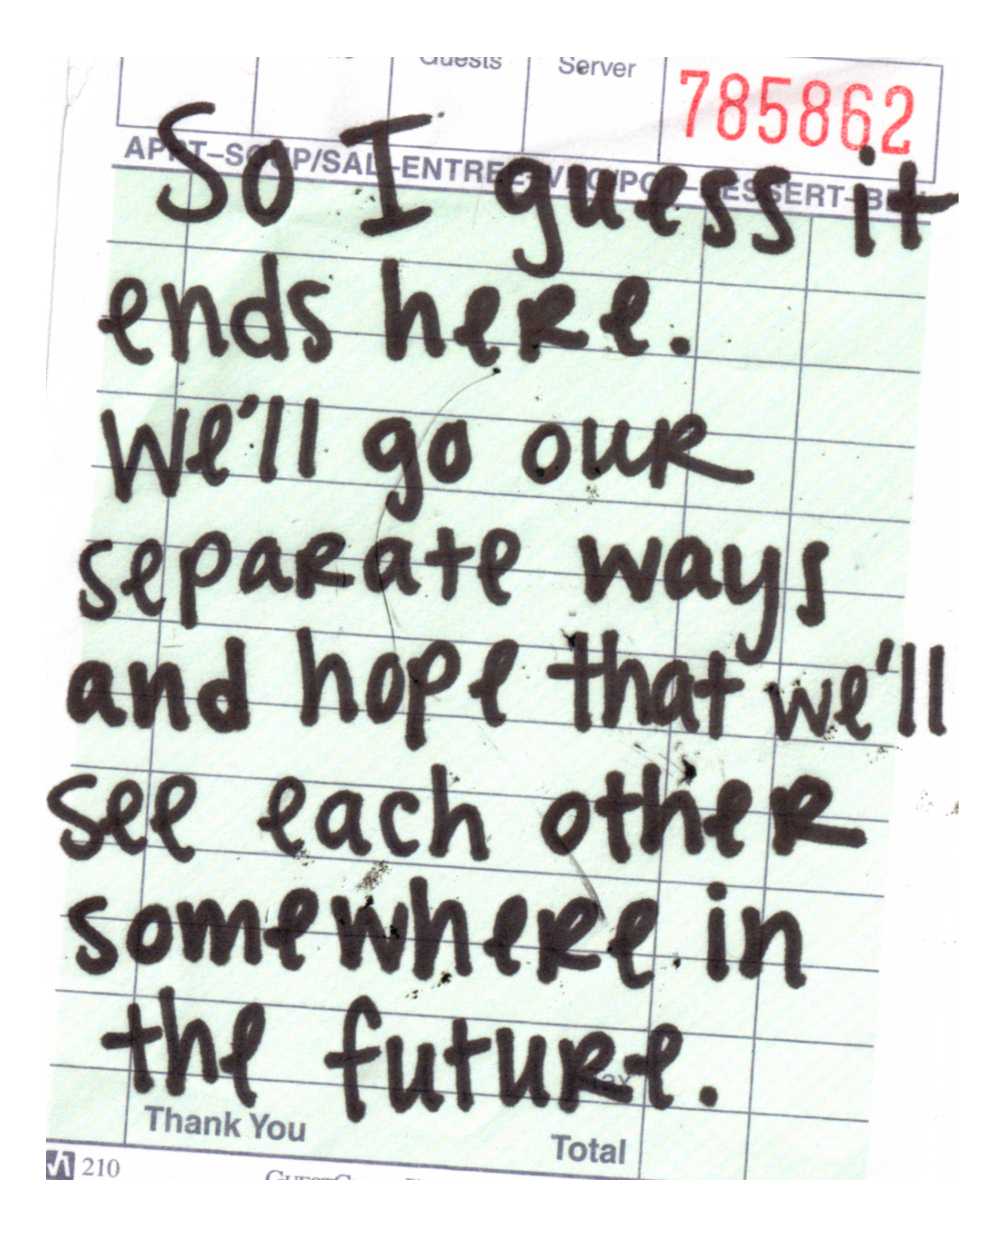 Guests Server 785862
APPT–SOUP/SAL–ENTREE–VEG/POT–DESSERT–BEV
So I guess it
ends here.
We'll go our
separate ways
and hope that we'll
see each other
somewhere in
the future.
Tax
Thank You Total
210